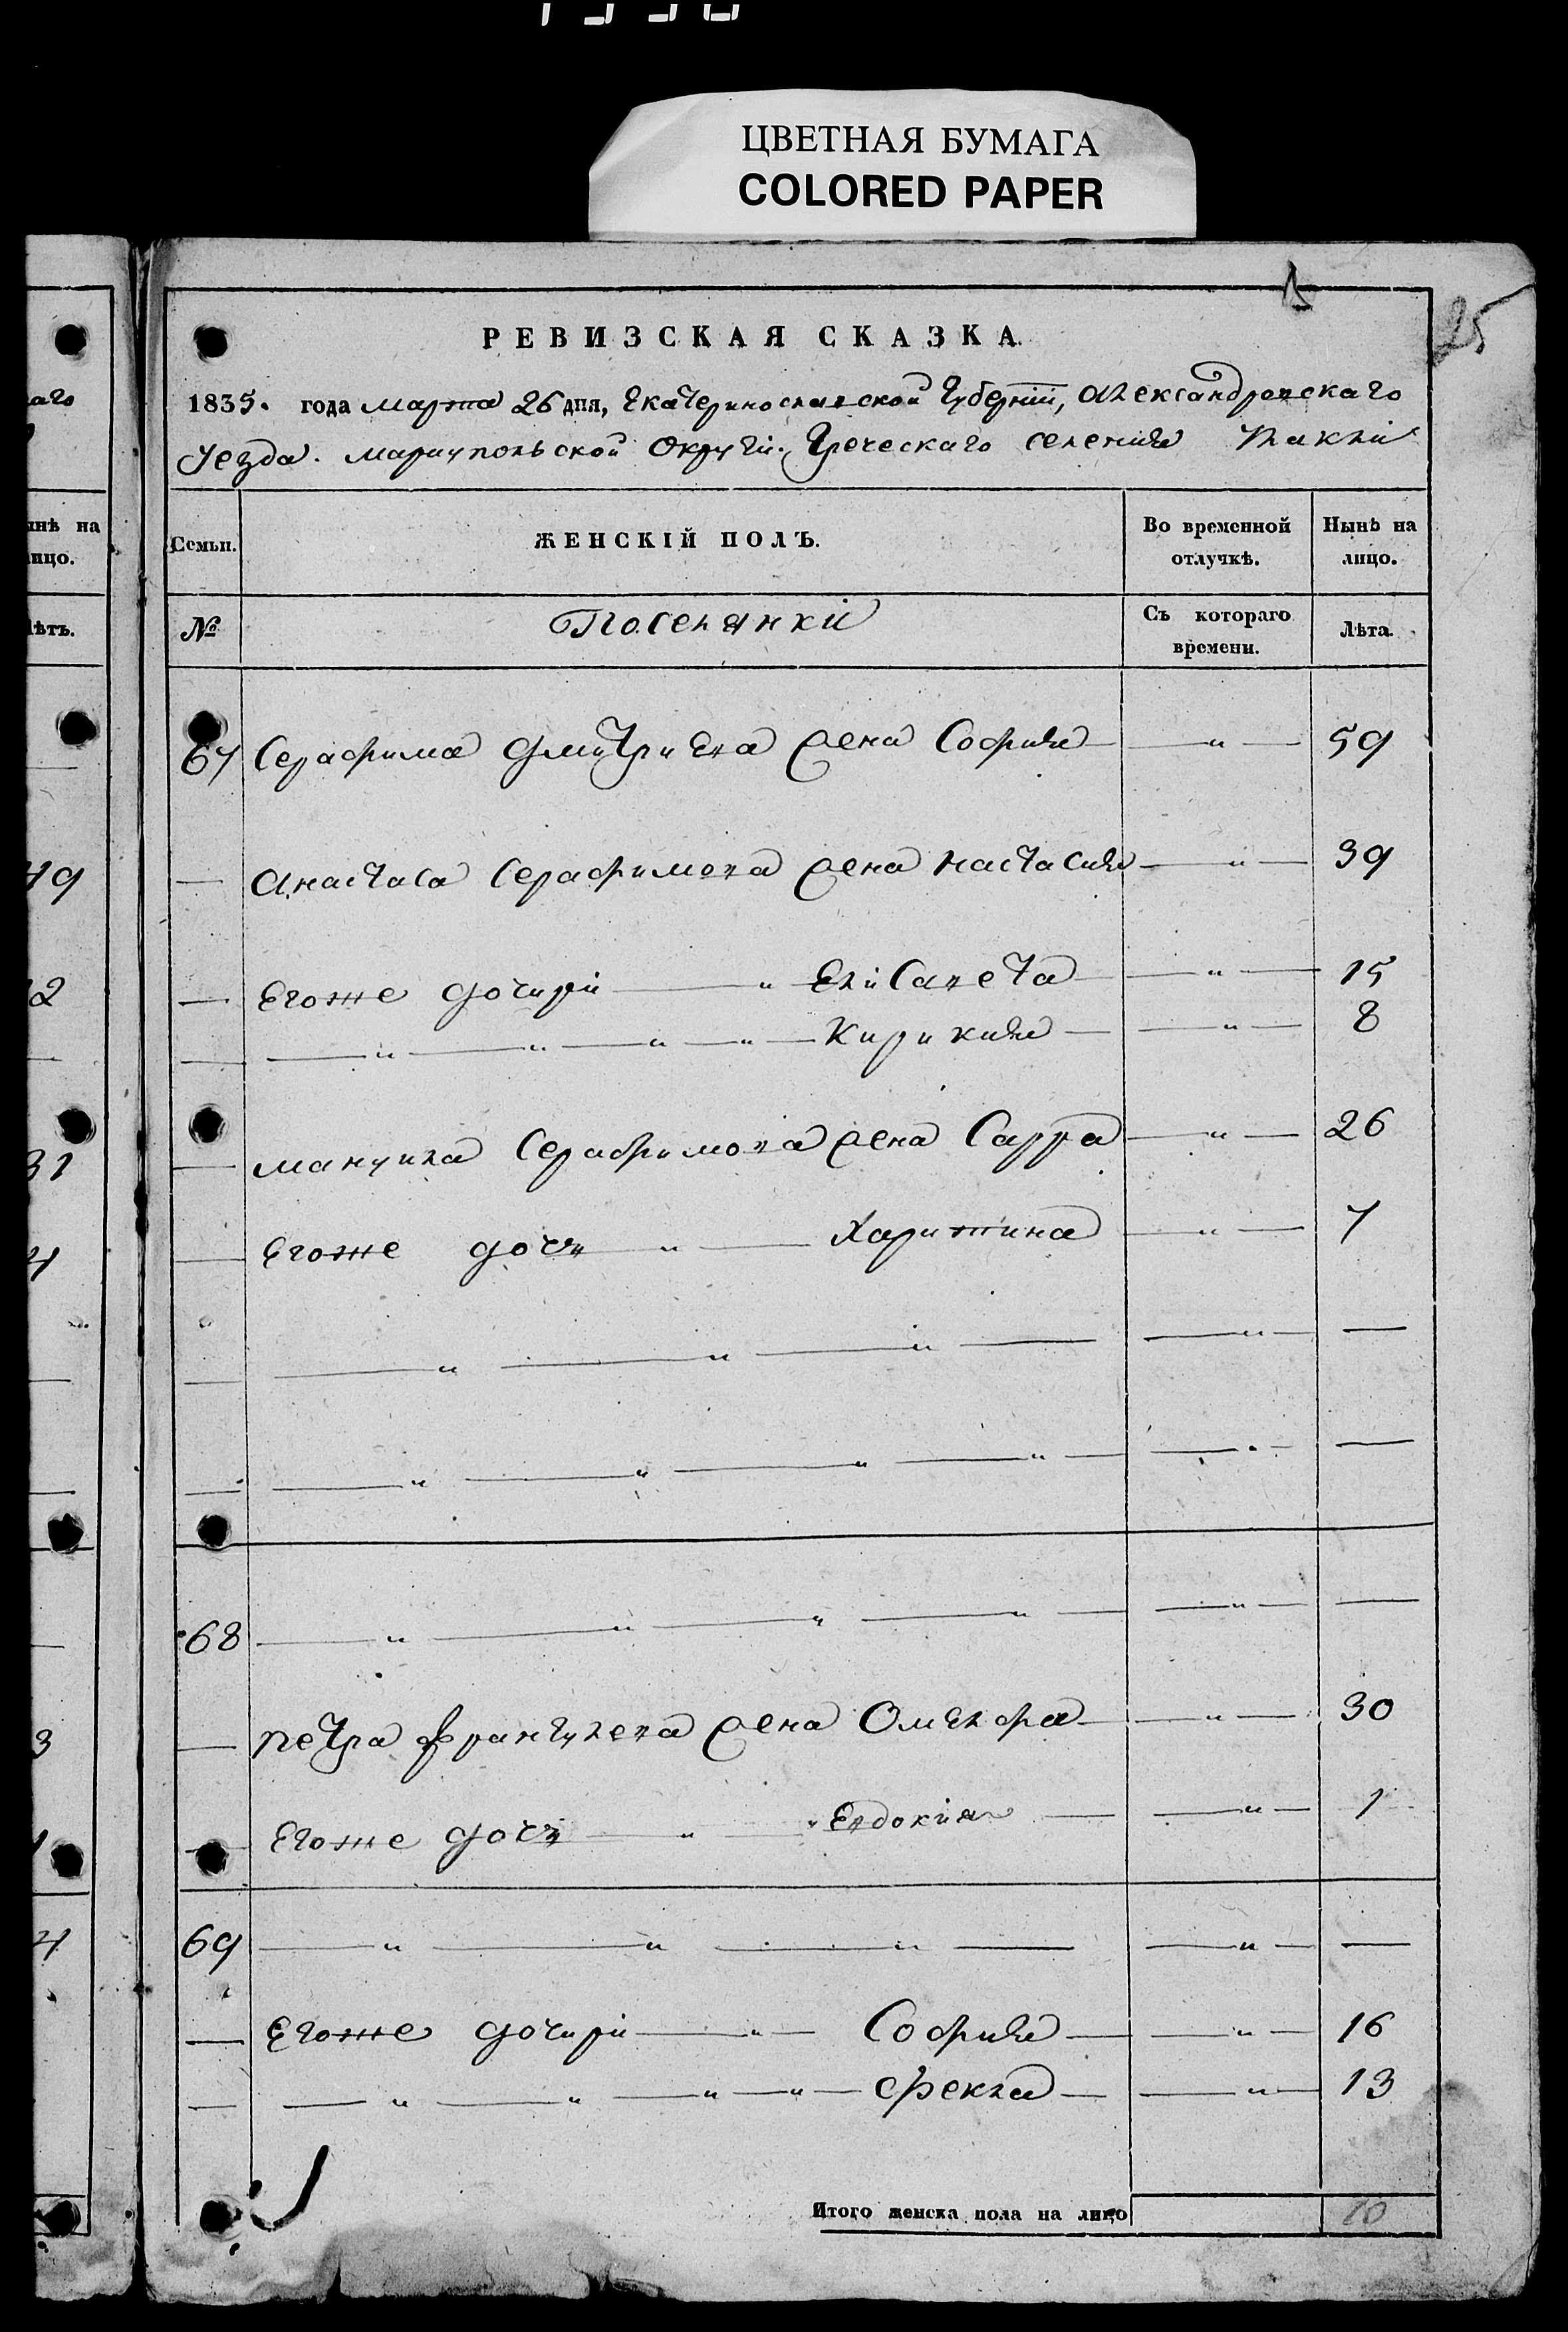 ЦВЕТНАЯ БУМАГА
COLORED PAPER
25
РЕВИЗСКАЯ СКАЗКА.
1835. года марта 26 дня, Екатеринославской Губернiи, Александровскаго
уезда. мариупольской Округи. Греческаго селения
Семьи. ЖЕНСКІЙ ПОЛЪ. Во временной отлучкѣ. Нынѣ на лицо.
№ Поселянки Съ котораго времени. Лѣта.
67 Серафима Дмитриева жена София — " — 59
— Анастаса Серафимова жена Настасия — " — 39
— Егоже дочири — " — Елисавета — " — 15
— — " — " — " — " — Кирикия — " — 8
— мануила Серафимова жена Сарра — " — 26
— Егоже дочь " — Харитина — " — 7
— — " — " — " — — " — —
— — " — " — " — " — — " — —
68 — " — " — " — " — — " — —
— петра Франгулева жена Омелфа — " — 30
— Егоже дочь — " — Евдокия — — " — 1
69 — " — " — " — — " — —
— Егоже дочири — " — София — — " — 16
— — " — " — " — " — Фекла — — " — 13
Итого женска пола на лицо 10
аго
ынѣ на
лицо.
Лѣтъ.
49
31
3